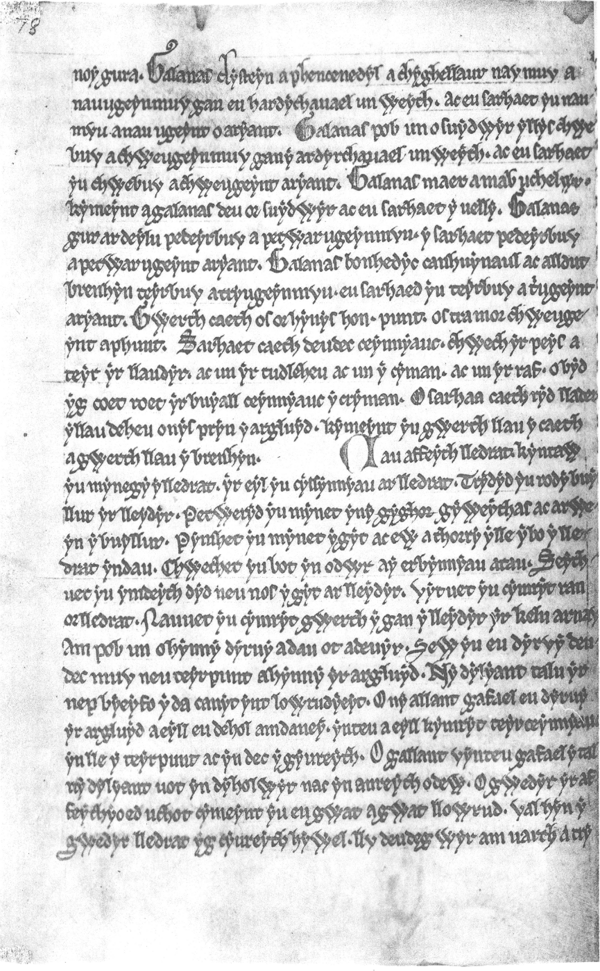 78
noy gura. Galanas dysteyn a phencenedyl a chyghellaur nay muy a
nauugeynmuy gan eu hardychauael un weych. ac eu sarhaet yu nau
muu a nau ugeynt o aryant. Galanas pob un o suydwyr yllys chwe
buy a chweugeynmuy gany ardyrchauael unweych. ac eu sarhaet
yu chwebuy a chweugeynt aryant. Galanas maer a mab uchelur.
kymeynt a galanas deu or suydwyr ac eu sarhaet y uelly. Galanas
gur ar deylu pedeyrbuy a petwar ugeynmuu. y sarhaet pedeyrbuy
a petwar ugeynt aryant. Galanas bonhedyc canhuynaul ac alldut
breyhyn teyrbuy a tryugeynmuu. eu sarhaed yu teyrbuy a trugeynt
aryant. Gwerth caeth os or hynys hon. punt. os tra mor chweuge
ynt a phunt. Sarhaet caeth deudec ceynnyauc. chwech yr peys a
teyr yr llaudyr. ac un yr cudlcheu ac un y cyman. ac un yr raf. o byd
yg coet roet yr buyall ceynnyauc y cryman. O sarhaa caeth ryd llader
y llau deheu onys pryn y argluyd. kymeynt yu gwerth llau y caeth
a gwerth llau y breyhyn. Nau affeyth lledrat. kyntaw
yu mynegy y lledrat. yr eyl yu cyssynnyau ar lledrat. Trydyd yu rody buy
llur yr lleydyr. Petweryd yu mynet yny gyghor gyweythas ac arwe
yn y buyllur. Pymhet yu mynet ygyt ac ew a thorry ylle y bo y lle
drat yndau. Chwechet yu bot yn odwr ay erbynnyau atau. Seyth
uet yu ymdeyth dyd neu nos ygyt ar lleydyr. Uytuet yu cymryt ran
or lledrat. Nauuet yu cymryt gwerth y gan y lleydyr yr kelu arnau
Am pob un o hynny dyruy a dau ot adeuyr. Sew yu eu dyruy deu
dec muy neu teyrpunt a hynny yr argluyd. Ny dylyant talu yr
nep byeyfo y da canyt ynt lowrudyeyt. Ony allant gafael eu dyruy
yr argluyd a eyll eu dehol amdaney. ynteu a eyll kymryt teyr ceynnyauc
yn lle y teyrpunt ac yn dec ygyureyth. O gallant uynteu gafael y tal
ny dylyant uot yn dyholwyr nac yn anreyth odew. O gwedyr yr af
feythyoed uchot cymeynt yu eu gwat a gwat llowrud. Ual hyn y
gwedyr lledrat yg cyureyth hywel. llu deudeg wyr am uarch a try